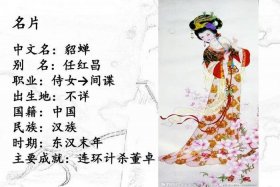 名片
中文名：貂蝉
别　名：任红昌
职业：侍女→间谍
出生地：不详
国籍：中国
民族：汉族
时期：东汉末年
主要成就：连环计杀董卓